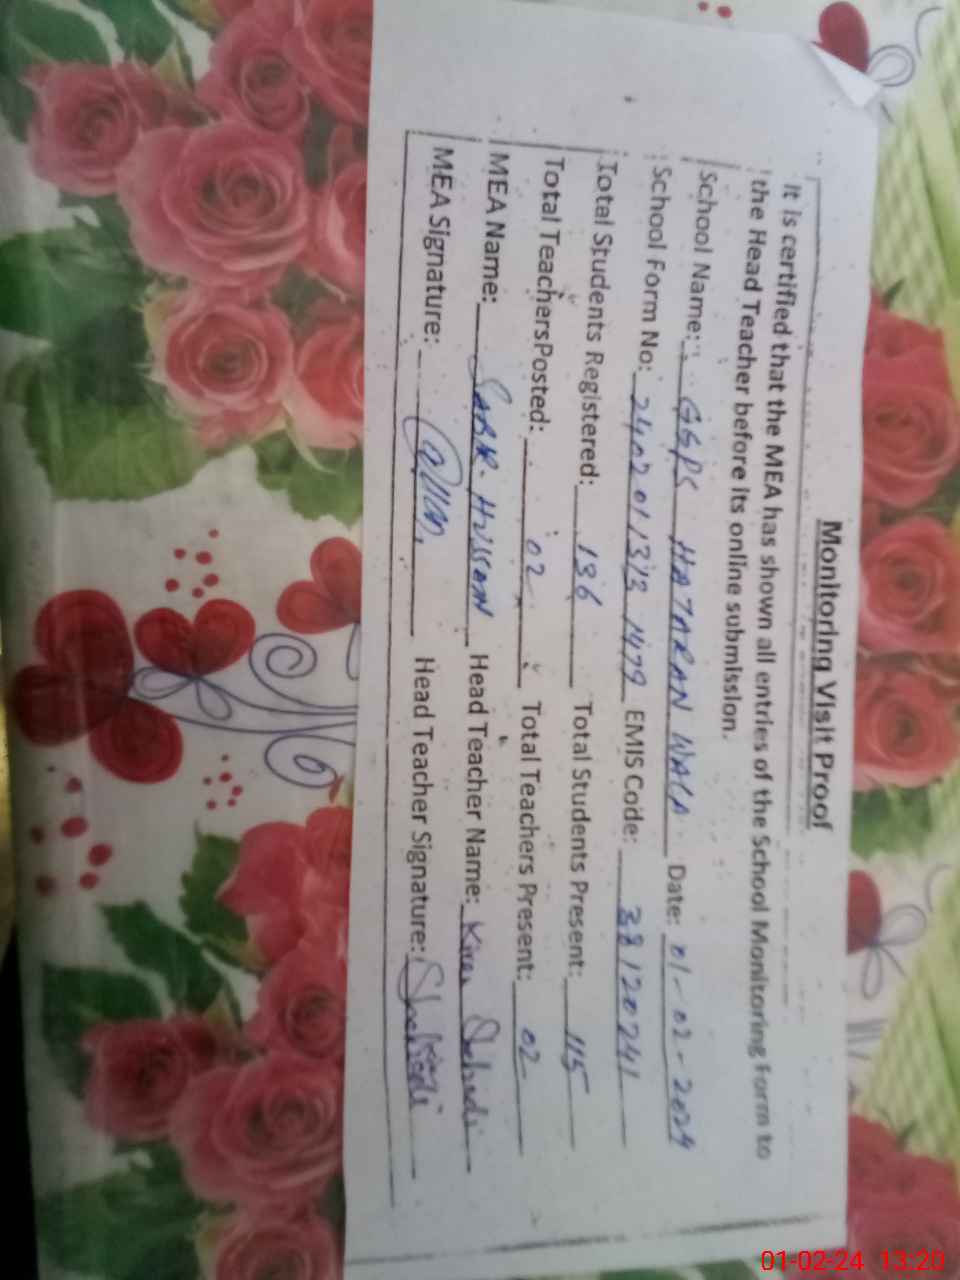 Monitoring Visit Proof
It is certified that the MEA has shown all entries of the School Monitoring Form to
the Head Teacher before its online submission.
School Name: GGPS HATARAN WALA Date: 01-02-2024
School Form No: 240201 1313 1479 EMIS Code: 38120241
Total Students Registered: 136 Total Students Present: 115
Total TeachersPosted: 02 Total Teachers Present: 02
MEA Name: Head Teacher Name: Kiran
MEA Signature: Head Teacher Signature:
01-02-24 13:20